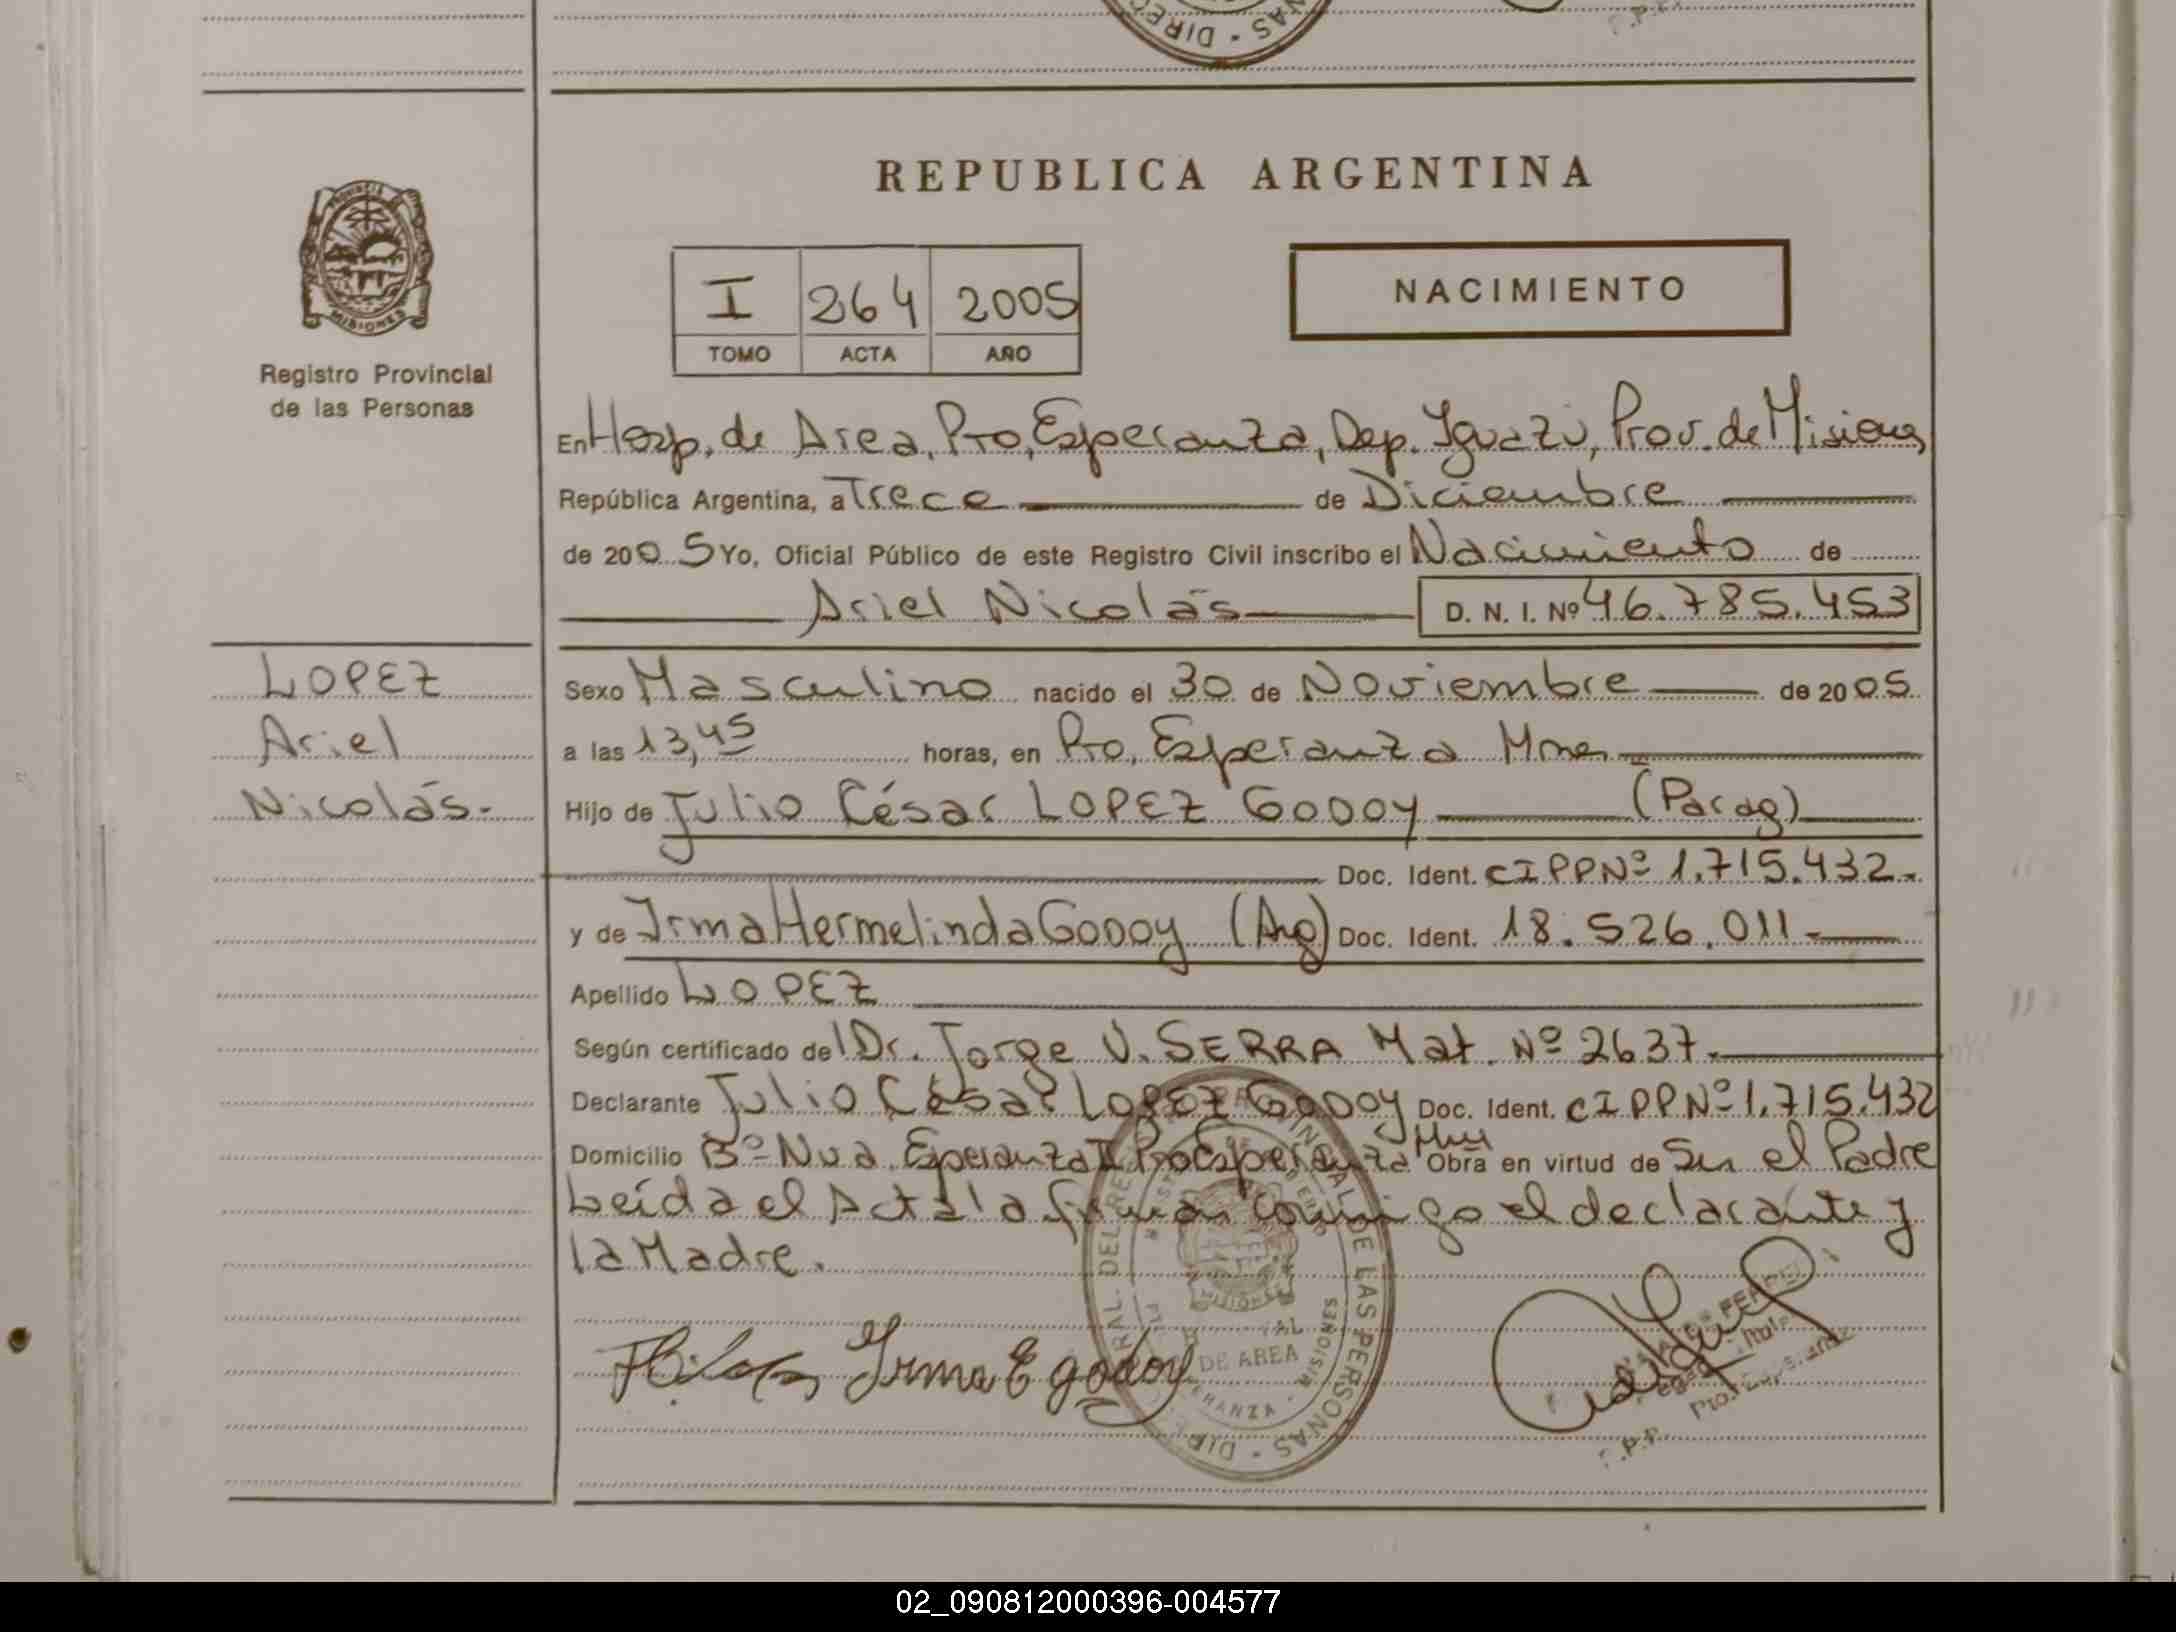 DIRE NAS
REPUBLICA ARGENTINA
PROVINCIA
MISIONES
Registro Provincial
de las Personas
I 264 2005
TOMO ACTA AÑO
NACIMIENTO
En Hosp. de Area, Pto, Esperanza, Dep. Iguazú, Prov. de Misiones
República Argentina, a Trece de Diciembre
de 2005 Yo, Oficial Público de este Registro Civil inscribo el Nacimiento de
Ariel Nicolás D. N. I. Nº 46.785.453
LOPEZ
Ariel
Nicolás.-
Sexo Masculino nacido el 30 de Noviembre de 2005
a las 13,45 horas, en Pto, Esperanza Mnes
Hijo de Julio César LOPEZ GODOY (Parag)
Doc. Ident. CIPPNº 1.715.432.-
y de Irma Hermelinda GODOY (Arg) Doc. Ident. 18.526.011.-
Apellido LOPEZ
Según certificado del Dr. Jorge V. SERRA Mat. Nº 2637.
Declarante Julio César LOPEZ GODOY Doc. Ident. CIPPNº 1.715.432
Domicilio Bº Nva. Esperanza II Pto Esperanza Obra en virtud de Ser el Padre
Leída el Acta la firman conmigo el declarante y
la Madre.
Irma E godoy
DE LAS PERSONAS
DE AREA
MISIONES
Pto. Esperanza
02_090812000396-004577